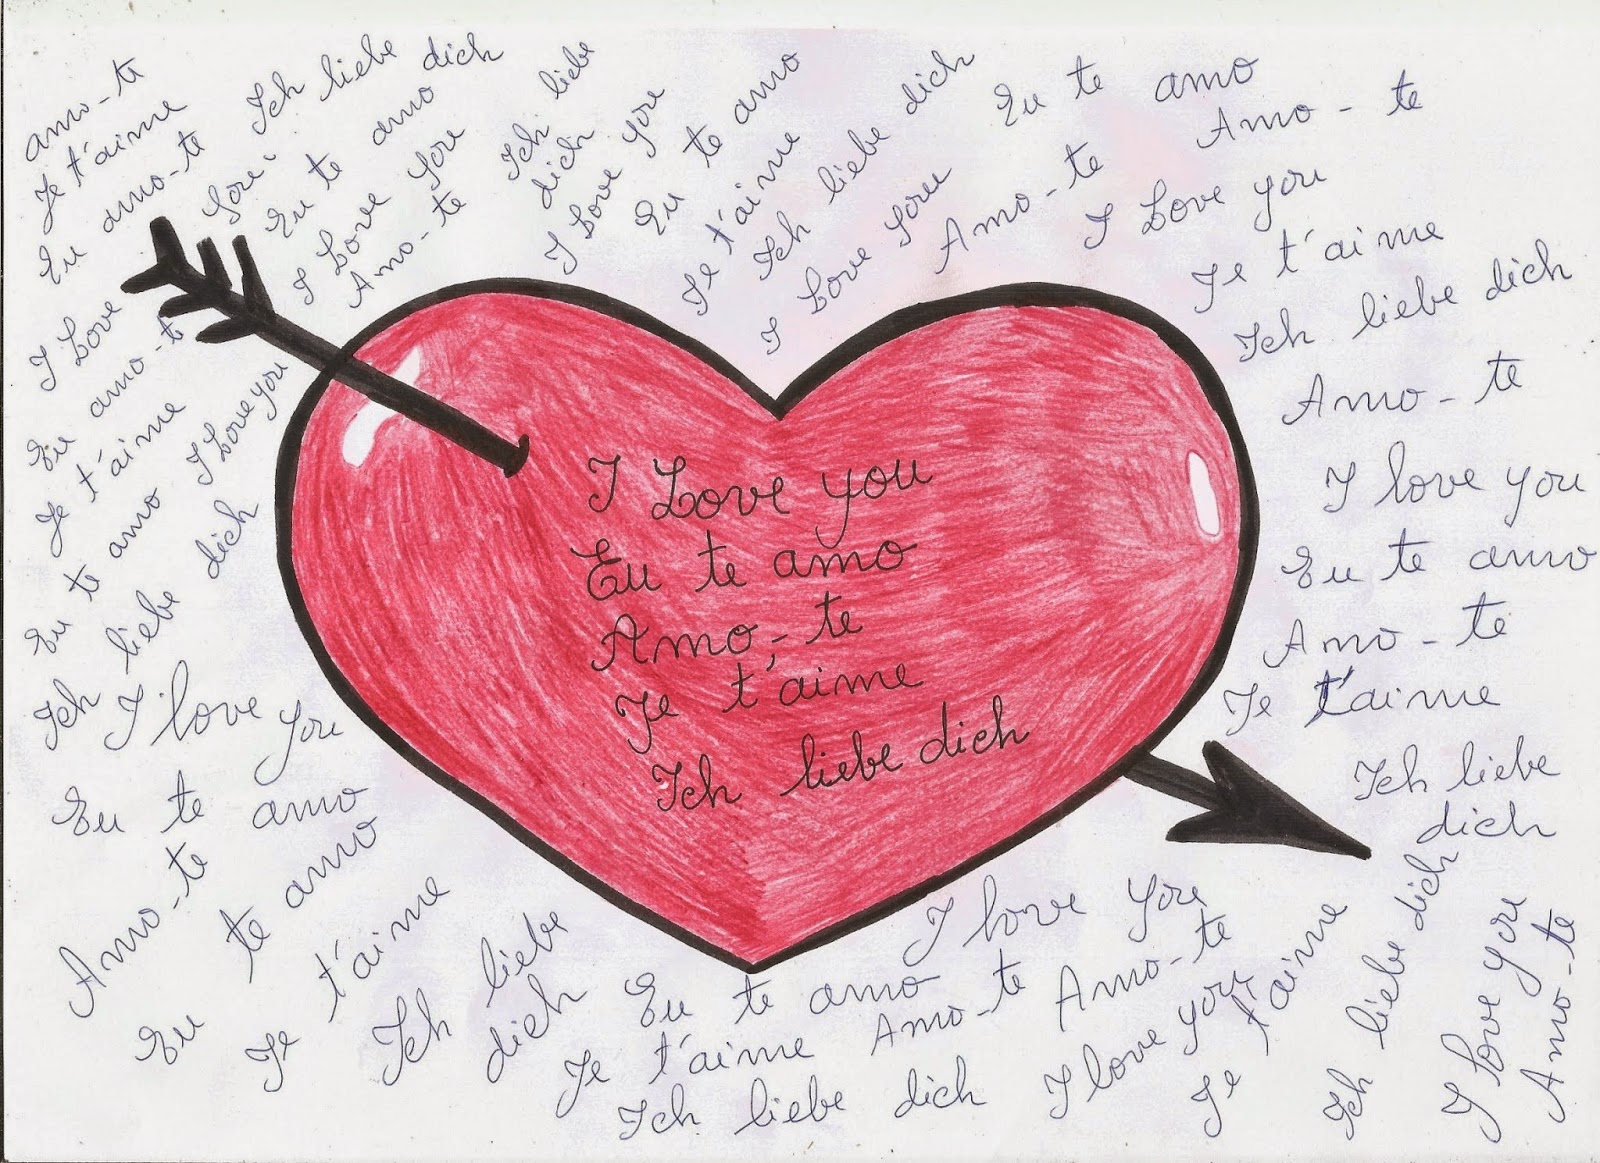 amo-te
Je t'aime
Eu amo-te
Ich liebe dich
I Love
you
Eu te amo
I Love you
Amo-te
Ich liebe
dich
I Love you
Eu te amo
Je t'aime
Ich liebe dich
I Love you
Eu te amo
Amo-te
Amo-te
I Love you
Je t'aime
Ich liebe dich
Amo-te
I love you
Eu te amo
Amo-te
Je t'aime
Ich liebe
dich
Eu amo-te
Je t'aime
I Love you
Eu te amo
Ich liebe dich
I love you
Eu te amo
Amo-te
Eu te amo
Je t'aime
Ich liebe
dich
I Love you
Eu te amo
Amo-te
Je t'aime
Ich liebe dich
I love you
Eu te amo
Amo-te
Je t'aime
Amo-te
Ich liebe dich
I love you
Je t'aime
Ich liebe dich
I love you
Amo-te